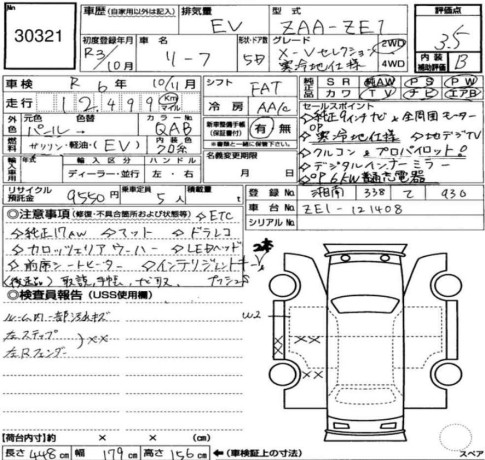 30321
車歴 (自家用以外は記入)
排気量 EV
型式 ZAA-ZE1
評価点 3.5
初度登録年月 R3/10月
車名 リーフ
形状・ドア数 5D
X-Vセレクション 寒冷地仕様
2WD 4WD
内装補助評価 B
車検 R 6年 10/11月
シフト FAT
純正品 SR 純AW PS PW
カワ TV ナビ エアB
走行 12,499 Km マイル
冷房 AA/c
セールスポイント
◇純正9インチナビ&全周囲モニター
外装色 元色 パール 色替
カラーNo. QAB
新車整備手帳(保証書付) 有・無
OP
◇寒冷地仕様 ◇地デジTV
※書類と一緒に後渡して下さい。
◇クルコン&プロパイロット!
燃料 ガソリン・軽油・(EV)
内装色 20系
名義変更期限 月 日
◇デジタルインナーミラー
輸入車 年 輸入区分 ディーラー・並行 ハンドル 左・右
OP 6KW普通充電器
リサイクル預託金 9550円
乗車定員 5人
積載量 t
登録 湘南 338 て 930
◎注意事項 (修復・不具合箇所および状態等) ◇ETC
車台 ZE1-121408
シリアルNo.
◇純正17AW ◇マット ◇ドラレコ
◇カロッツェリアウーハー ◇LEDヘッド
◇前席シートヒーター ◇インテリジェントキー 2本
(後送品) 取説、手帳、ナビ取 プッシュS
◎検査員報告 (USS使用欄)
ルーム内一部汚れキズ
左ステップ
左Rフェンダー ××
W2
××
×
【荷台内寸】約 × × (cm)
長さ 448cm 幅 179cm 高さ 156cm ←(車検証上の寸法)
スペア